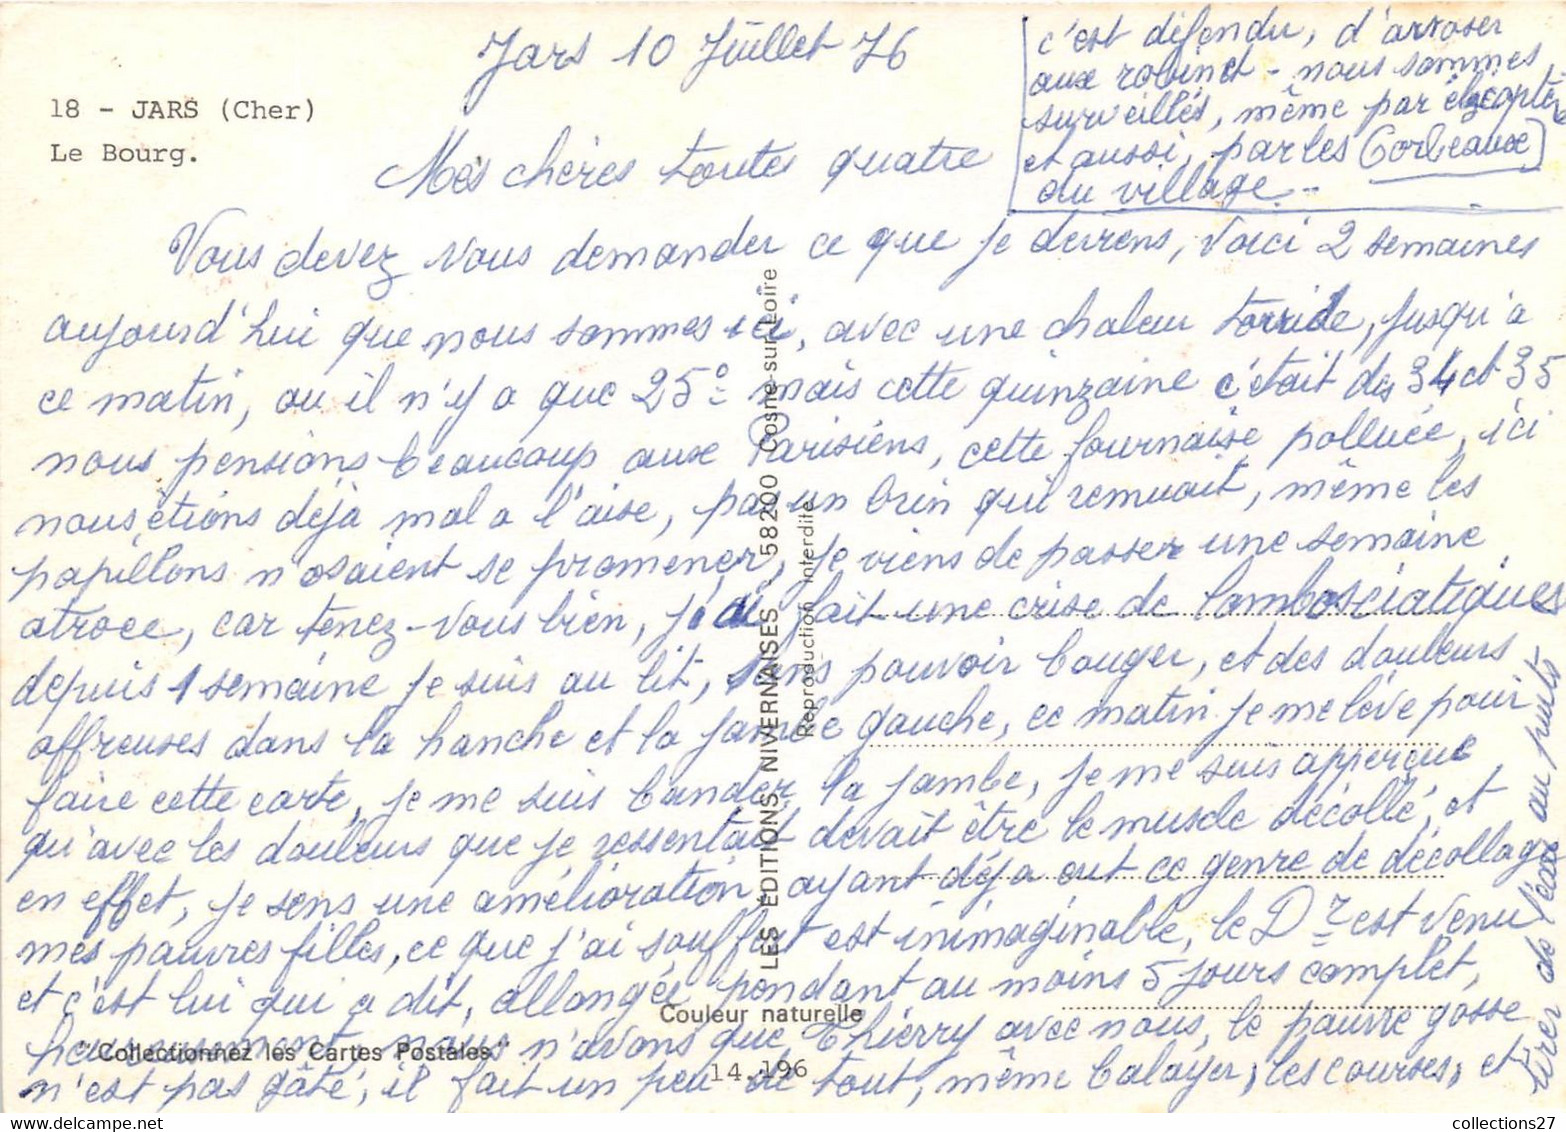 Jars 10 Juillet 76
18 - JARS (Cher)
Le Bourg.
Mes chères toutes quatre
Vous devez vous demander ce que je deviens, voici 2 semaines
aujourd'hui que nous sommes ici, avec une chaleur torride, jusqu'a
ce matin, ou il n'y a que 25° mais cette quinzaine c'était des 34 et 35
nous pensions beaucoup aux Parisiens, cette fournaise polluée, ici
nous étions déjà mal a l'aise, pas un brin qui remuait, même les
papillons n'osaient se promener, je viens de passer une semaine
atroce, car tenez-vous bien, j'ai fait une crise de lambosciatiques
depuis 1 semaine je suis au lit, sans pouvoir bouger, et des douleurs
affreuses dans la hanche et la jambe gauche, ce matin je me lève pour
faire cette carte, je me suis bander la jambe, je me suis apperçue
qu'avec les douleurs que je ressentait devait être le muscle décollé, et
en effet, je sens une amélioration, ayant déja eut ce genre de décollage
mes pauvres filles, ce que j'ai souffert est inimaginable, le Dr est venu
et c'est lui qui a dit, allongée pendant au moins 5 jours complet,
heureusement, nous n'avons que Thierry avec nous, le pauvre gosse
n'est pas gâté, il fait un peu de tout, même balayer, les courses, et
tirer de l'eau au puits
c'est défendu, d'arroser
aux robinet - nous sommes
surveillés, même par élicoptère
et aussi, par les (Corbeaux)
du village -
LES ÉDITIONS NIVERNAISES 58200 Cosne-sur-Loire
Reproduction interdite
Couleur naturelle
"Collectionnez les Cartes Postales"
14.196
collections27